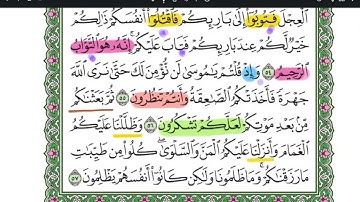 ٱلْعِجْلَ فَتُوبُوٓا۟ إِلَىٰ بَارِئِكُمْ فَٱقْتُلُوٓا۟ أَنفُسَكُمْ ذَٰلِكُمْ
خَيْرٌ لَّكُمْ عِندَ بَارِئِكُمْ فَتَابَ عَلَيْكُمْ إِنَّهُۥ هُوَ ٱلتَّوَّابُ
ٱلرَّحِيمُ ٥٤ وَإِذْ قُلْتُمْ يَٰمُوسَىٰ لَن نُّؤْمِنَ لَكَ حَتَّىٰ نَرَى ٱللَّهَ
جَهْرَةً فَأَخَذَتْكُمُ ٱلصَّٰعِقَةُ وَأَنتُمْ تَنظُرُونَ ٥٥ ثُمَّ بَعَثْنَٰكُم
مِّنۢ بَعْدِ مَوْتِكُمْ لَعَلَّكُمْ تَشْكُرُونَ ٥٦ وَظَلَّلْنَا عَلَيْكُمُ
ٱلْغَمَامَ وَأَنزَلْنَا عَلَيْكُمُ ٱلْمَنَّ وَٱلسَّلْوَىٰ كُلُوا۟ مِن طَيِّبَٰتِ
مَا رَزَقْنَٰكُمْ وَمَا ظَلَمُونَا وَلَٰكِن كَانُوٓا۟ أَنفُسَهُمْ يَظْلِمُونَ ٥٧